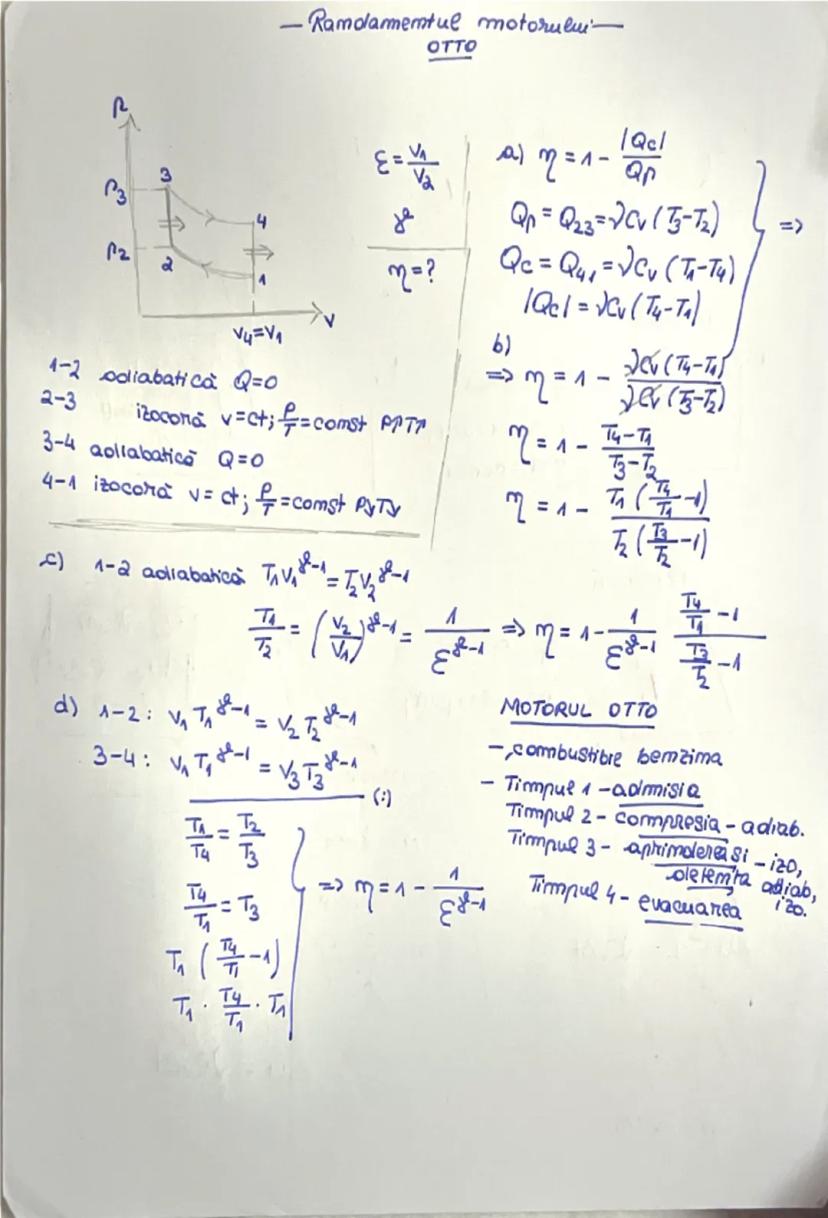 — Randamentul motorului —
OTTO
p
p3
p2
3
4
2
1
V4=V1
V
ε = V1/V2
γ
η = ?
a) η = 1 - |Qc|/Qp
Qp = Q23 = νCv (T3-T2)
Qc = Q41 = νCv (T1-T4)
|Qc| = νCv (T4-T1)
=>
b)
=> η = 1 - νCv (T4-T1)/νCv (T3-T2)
η = 1 - (T4-T1)/(T3-T2)
η = 1 - T1 (T4/T1 -1)/T2 (T3/T2 -1)
1-2 adiabatică Q=0
2-3 izocoră v=ct; p/T=const P↑T↑
3-4 adiabatică Q=0
4-1 izocoră v=ct; p/T=const P↓T↓
c) 1-2 adiabatică T1V1^γ-1 = T2V2^γ-1
T1/T2 = (V2/V1)^γ-1 = 1/ε^γ-1 => η = 1 - 1/ε^γ-1 (T4/T1 -1)/(T3/T2 -1)
d) 1-2: V1 T1^γ-1 = V2 T2^γ-1
3-4: V1 T1^γ-1 = V3 T3^γ-1
(:)
T1/T4 = T2/T3
T4/T1 = T3
T1 (T4/T1 -1)
T1 · T4/T1 · T1
=> η = 1 - 1/ε^γ-1
MOTORUL OTTO
- combustibie benzina
- Timpul 1 - admisia
Timpul 2 - compresia - adiab.
Timpul 3 - aprinderea si - izo,
detenta adiab,
Timpul 4 - evacuarea izo.